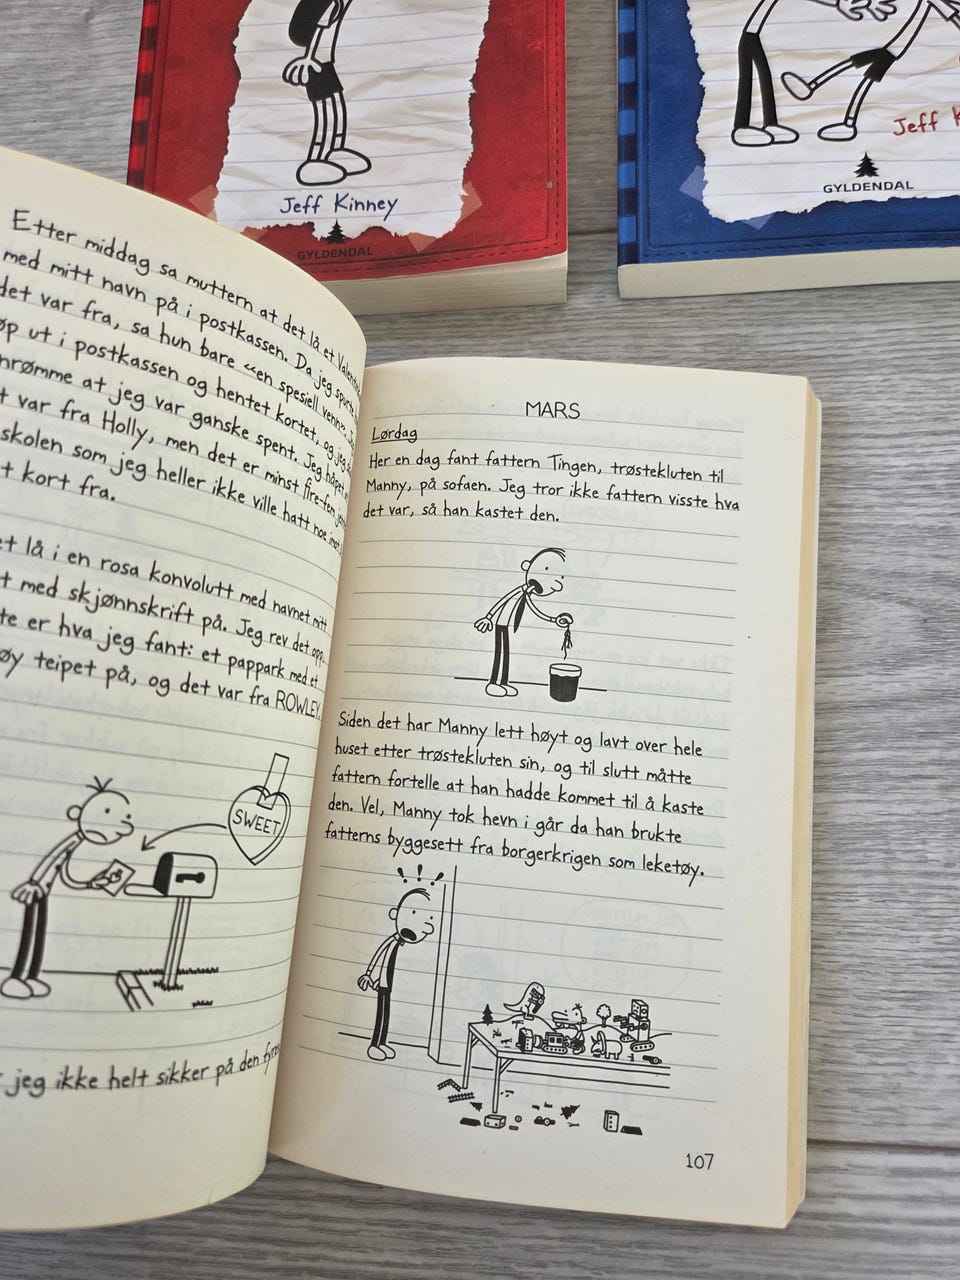 Jeff Kinney
GYLDENDAL
Jeff
GYLDENDAL
Etter middag sa muttern at det lå et
med mitt navn på i postkassen. Da jeg
det var fra, sa hun bare «en spesiell venn».
ut i postkassen og hentet kortet, og jeg
at jeg var ganske spent. Jeg
var fra Holly, men det er minst fire-fem
skolen som jeg heller ikke ville hatt noe imot
kort fra.
lå i en rosa konvolutt med navnet mitt
med skjønnskrift på. Jeg rev det opp,
er hva jeg fant: et pappark med et
teipet på, og det var fra ROWLEY.
SWEET
jeg ikke helt sikker på den
MARS
Lørdag
Her en dag fant fattern Tingen, trøstekluten til
Manny, på sofaen. Jeg tror ikke fattern visste hva
det var, så han kastet den.
Siden det har Manny lett høyt og lavt over hele
huset etter trøstekluten sin, og til slutt måtte
fattern fortelle at han hadde kommet til å kaste
den. Vel, Manny tok hevn i går da han brukte
fatterns byggesett fra borgerkrigen som leketøy.
!!!
107